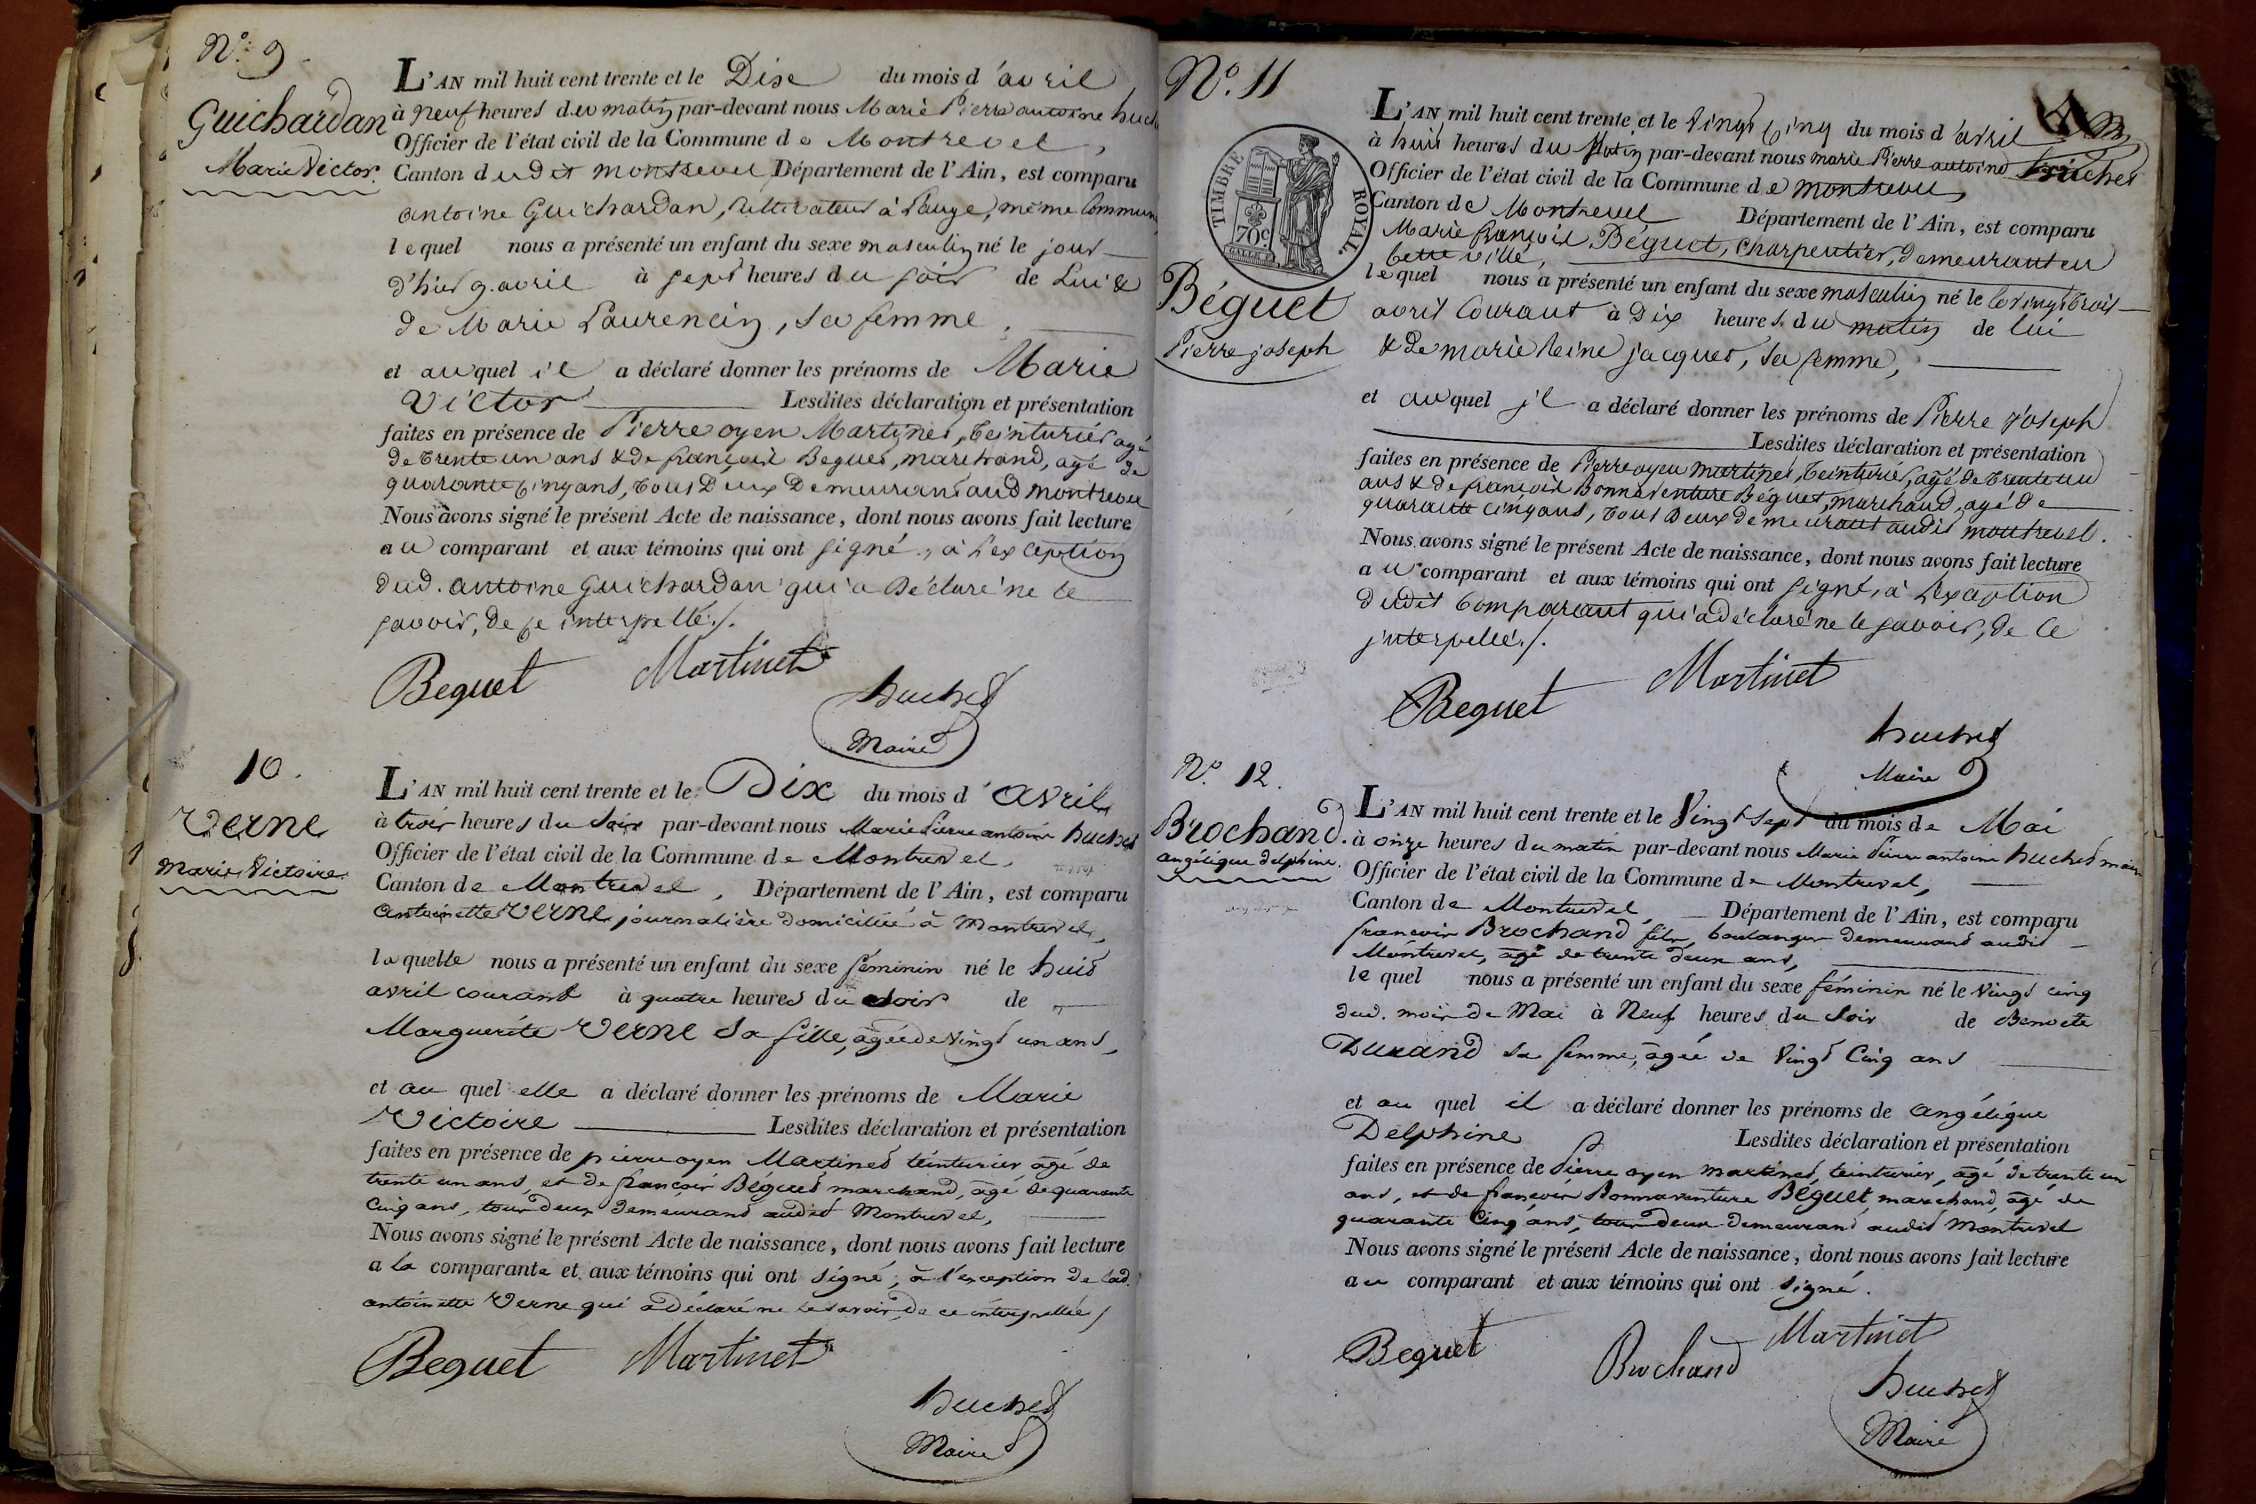 N.° 9
Guichardan
Marie Victor.
L'AN mil huit cent trente et le Dix du mois d'avril
à neuf heures du matin par-devant nous Marie Pierre antoine huchet
Officier de l'état civil de la Commune de Montrevel,
Canton dudit montrevel Département de l'Ain, est comparu
antoine Guichardan, cultivateur à Lauze, même Commune
lequel nous a présenté un enfant du sexe masculin né le jour
d'hier 9. avril à sept heures du soir de Lui &
de Marie Laurencin, sa femme.
et auquel il a déclaré donner les prénoms de Marie
Victor Lesdites déclaration et présentation
faites en présence de Pierre oyen Martinet, teinturier agé
de trente un ans & de françois Beguet, marchand, agé de
quarante cinq ans, tous Deux Demeurant aud montrevel
Nous avons signé le présent Acte de naissance, dont nous avons fait lecture
au comparant et aux témoins qui ont signé, à L'exception
dud. antoine Guichardan qui a Déclaré ne le
savoir, de ce interpellé./.
Beguet Martinet
huchet
Maire
10.
Verne
Marie Victoire
L'AN mil huit cent trente et le Dix du mois d'avril
à trois heures du Soir par-devant nous Marie Pierre antoine huchet
Officier de l'état civil de la Commune de Montrevel,
Canton de Montrevel, Département de l'Ain, est comparu
Antoinette Verne journalière domiciliée à Montrevel,
laquelle nous a présenté un enfant du sexe féminin né le huit
avril courant à quatre heures du soir de
Marguerite Verne Sa fille, agée de Vingt un ans,
et au quel elle a déclaré donner les prénoms de Marie
Victoire Lesdites déclaration et présentation
faites en présence de pierre oyen Martinet teinturier agé de
trente un ans, et de françois Béguet marchand, agé de quarante
Cinq ans, tous deux demeurant audit Montrevel,
Nous avons signé le présent Acte de naissance, dont nous avons fait lecture
a la comparante et aux témoins qui ont signé, à l'exception de lad.
antoinette Verne qui a Déclaré ne le savoir, de ce interpellée /
Beguet Martinet
huchet
Maire
N.° 11
TIMBRE ROYAL.
70c
Béguet
Pierre joseph
L'AN mil huit cent trente et le Vingt Cinq du mois d'avril
à huit heures du Matin par-devant nous marie Pierre antoine huchet
Officier de l'état civil de la Commune de montrevel
Canton de Montrevel Département de l'Ain, est comparu
Marie françois Béguet, charpentier, demeurant en
Cette ville,
lequel nous a présenté un enfant du sexe masculin né le le vingt trois
avril Courant à Dix heures du matin de lui
& de marie Reine jacquet, sa femme,
et auquel il a déclaré donner les prénoms de Pierre Joseph
Lesdites déclaration et présentation
faites en présence de Pierre oyen martinet, teinturier, agé de trente un
ans & de françois Bonnaventure Béguet, marchand, agé de
quarante cinq ans, tous Deux demeurant audit montrevel.
Nous avons signé le présent Acte de naissance, dont nous avons fait lecture
au comparant et aux témoins qui ont signé, à L'exception
dudit Comparant qui a déclaré ne le savoir, de ce
interpellé./.
Beguet Martinet
huchet
Maire
N.° 12.
Brochand.
angélique delphine.
L'AN mil huit cent trente et le Vingt Sept du mois de Mai
à onze heures du matin par-devant nous Marie Pierre antoine huchet maire
Officier de l'état civil de la Commune de Montrevel,
Canton de Montrevel, Département de l'Ain, est comparu
françois Brochand fils, boulanger demeurant audit
Montrevel, agé de trente deux ans,
le quel nous a présenté un enfant du sexe féminin né le vingt cinq
dud. mois de Mai à Neuf heures du Soir de Benoite
Durand sa femme, agée de Vingt Cinq ans
et au quel il a déclaré donner les prénoms de angélique
Delphine Lesdites déclaration et présentation
faites en présence de Pierre oyen martinet, teinturier, agé de trente un
ans, et de françois Bonnaventure Béguet, marchand, agé de
quarante Cinq ans, tous deux demeurant audit Montrevel
Nous avons signé le présent Acte de naissance, dont nous avons fait lecture
au comparant et aux témoins qui ont signé.
Beguet Brochand Martinet
huchet
Maire